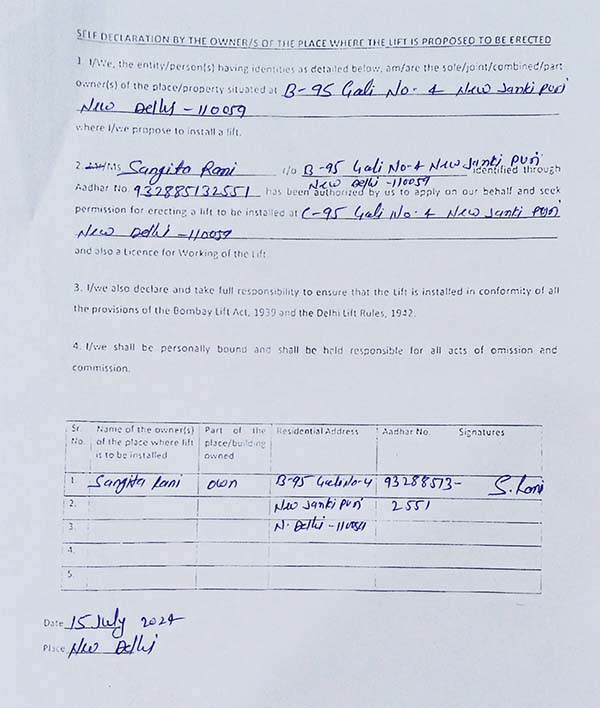 SELF DECLARATION BY THE OWNER/S OF THE PLACE WHERE THE LIFT IS PROPOSED TO BE ERECTED
1. I/We, the entity/person(s) having identities as detailed below, am/are the sole/joint/combined/part
owner(s) of the place/property situated at B-95 Gali No. 4 New Janki Puri
New Delhi - 110059
where I/we propose to install a lift.
2. Ms Sangita Rani r/o B-95 Gali No-4 New Janki Puri identified through
New Delhi - 110059
Aadhar No. 932885132551 has been authorized by us to apply on our behalf and seek
permission for erecting a lift to be installed at C-95 Gali No. 4 New Janki Puri
New Delhi - 110059
and also a Licence for Working of the Lift.
3. I/we also declare and take full responsibility to ensure that the Lift is installed in conformity of all
the provisions of the Bombay Lift Act, 1939 and the Delhi Lift Rules, 1942.
4. I/we shall be personally bound and shall be held responsible for all acts of omission and
commission.
Sr. No. Name of the owner(s) of the place where lift is to be installed Part of the place/building owned Residential Address Aadhar No. Signatures
1 Sangita Rani own B-95 Gali No-4 93288513- S. Rani
2. New Janki Puri 2551
3 N. Delhi - 110059
4.
5.
Date 15 July 2024
Place New Delhi